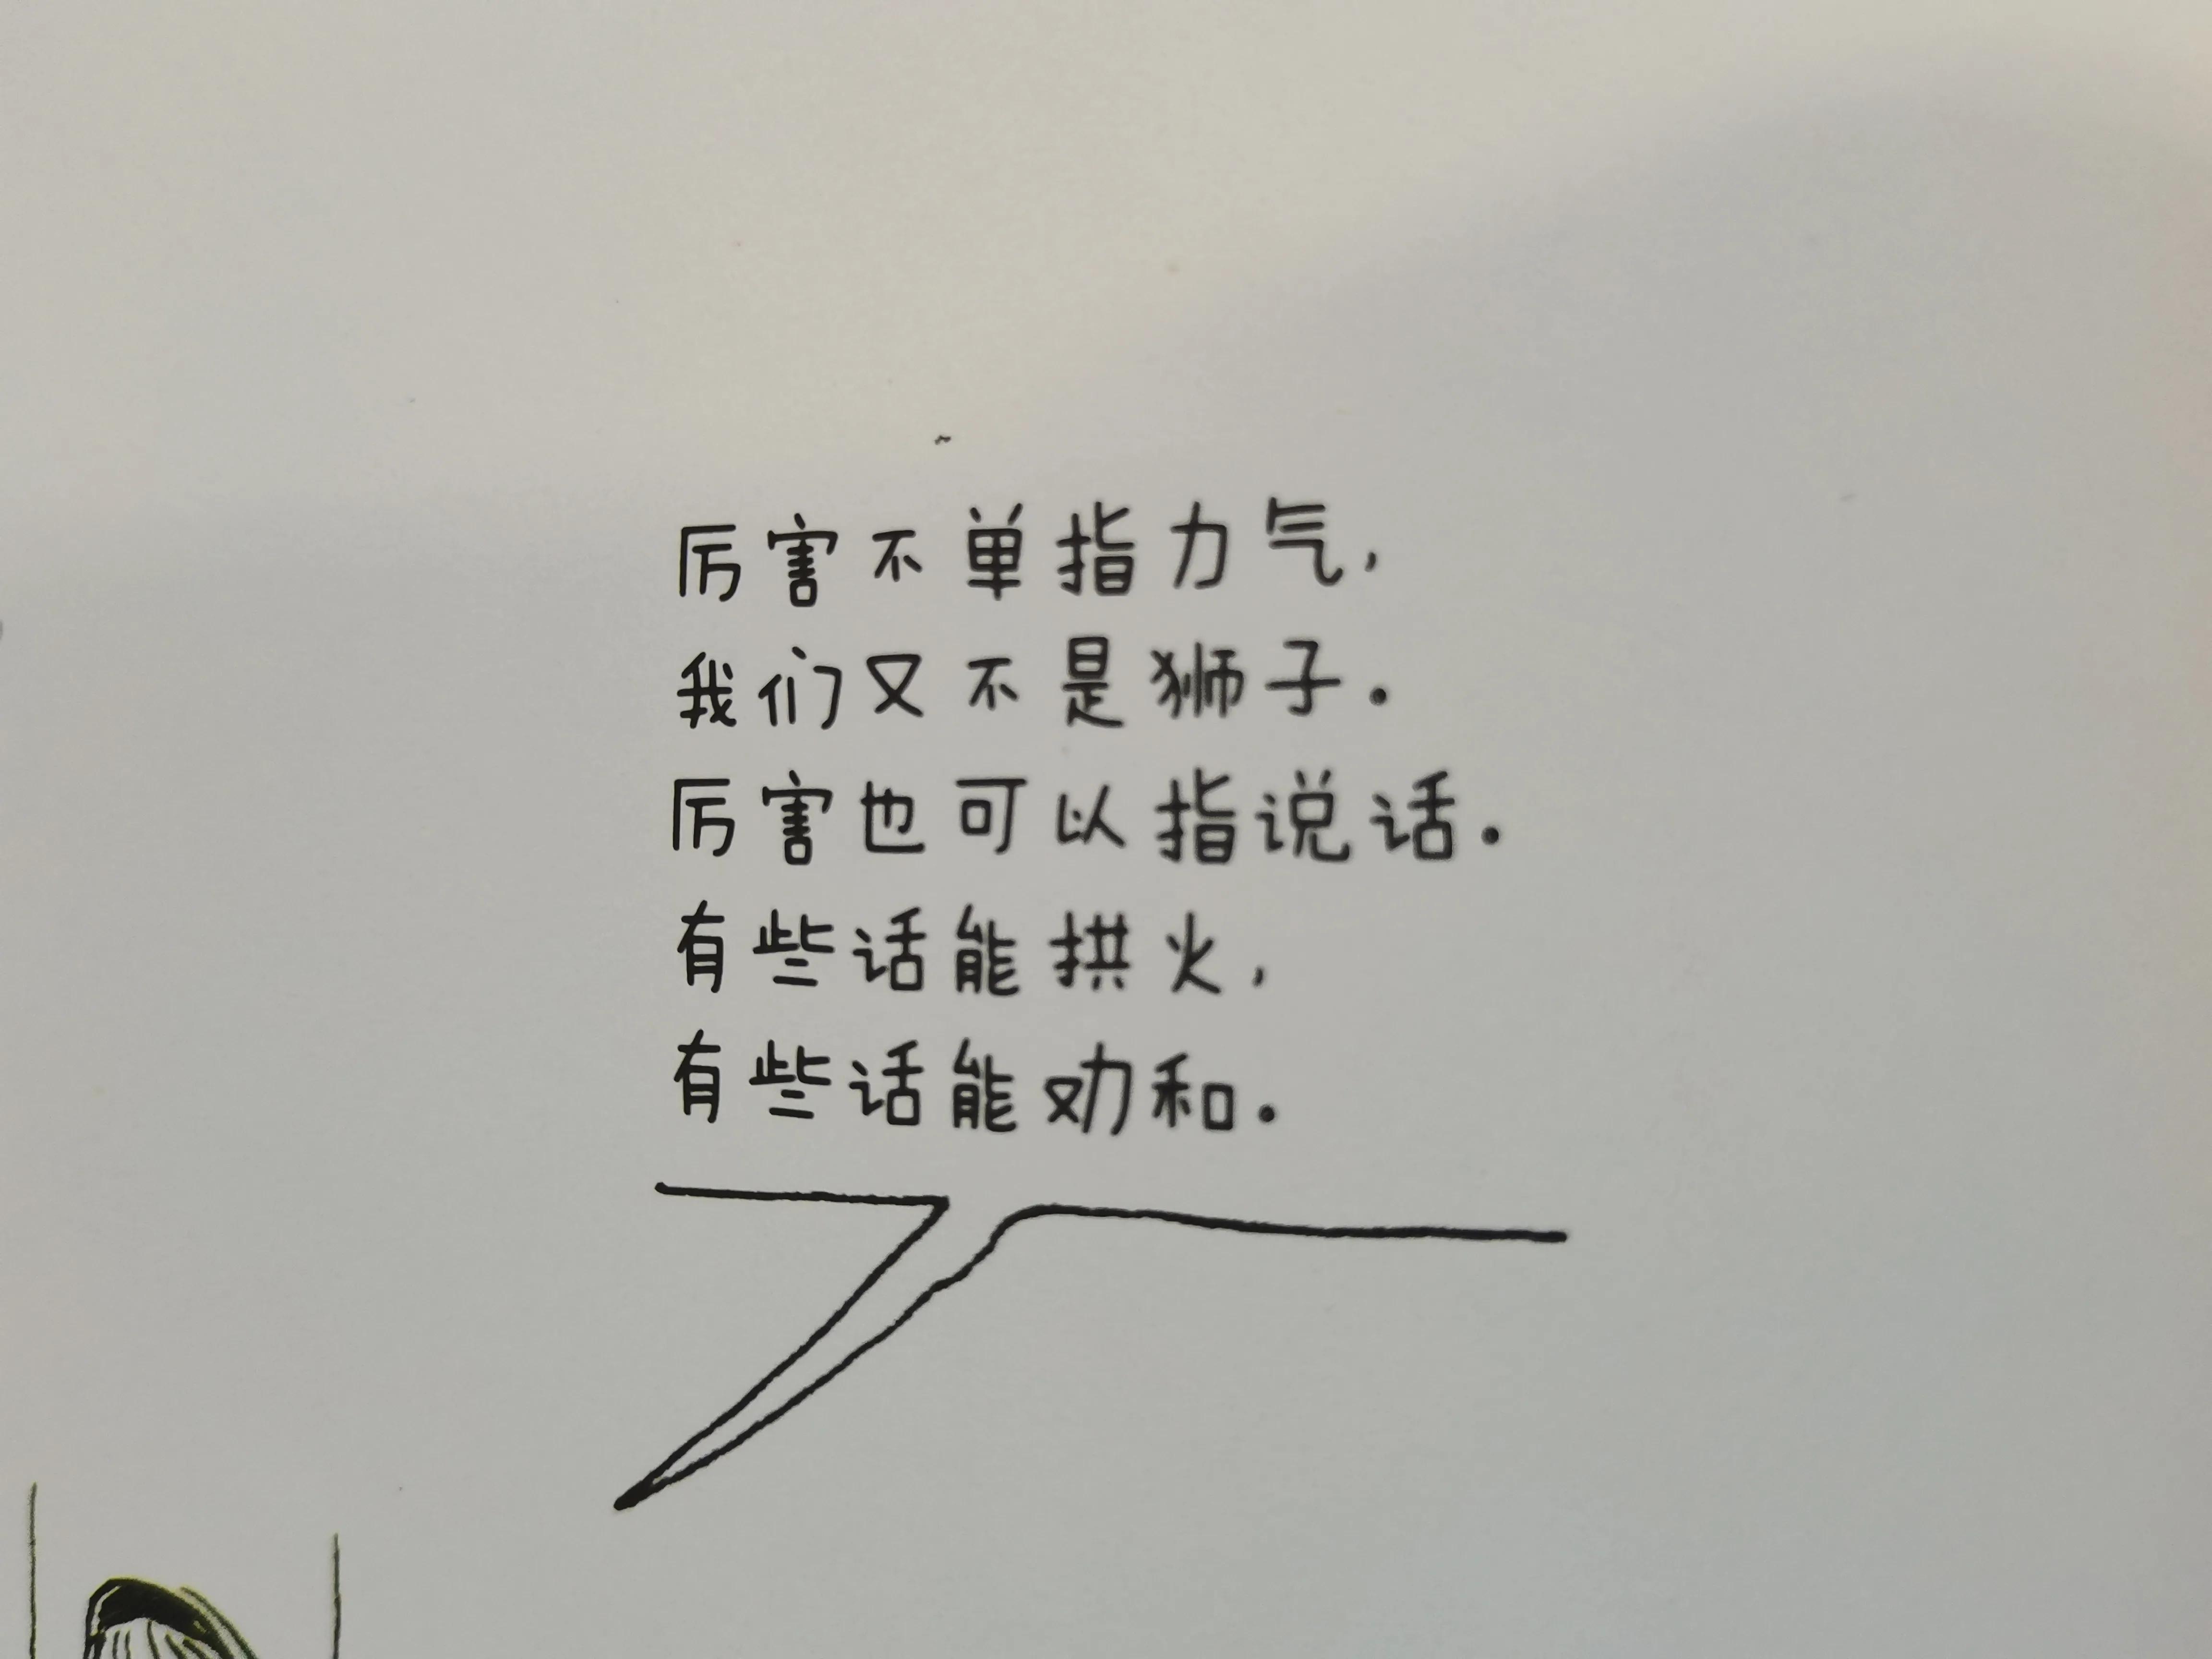 厉害不单指力气,
我们又不是狮子.
厉害也可以指说话.
有些话能拱火,
有些话能劝和.